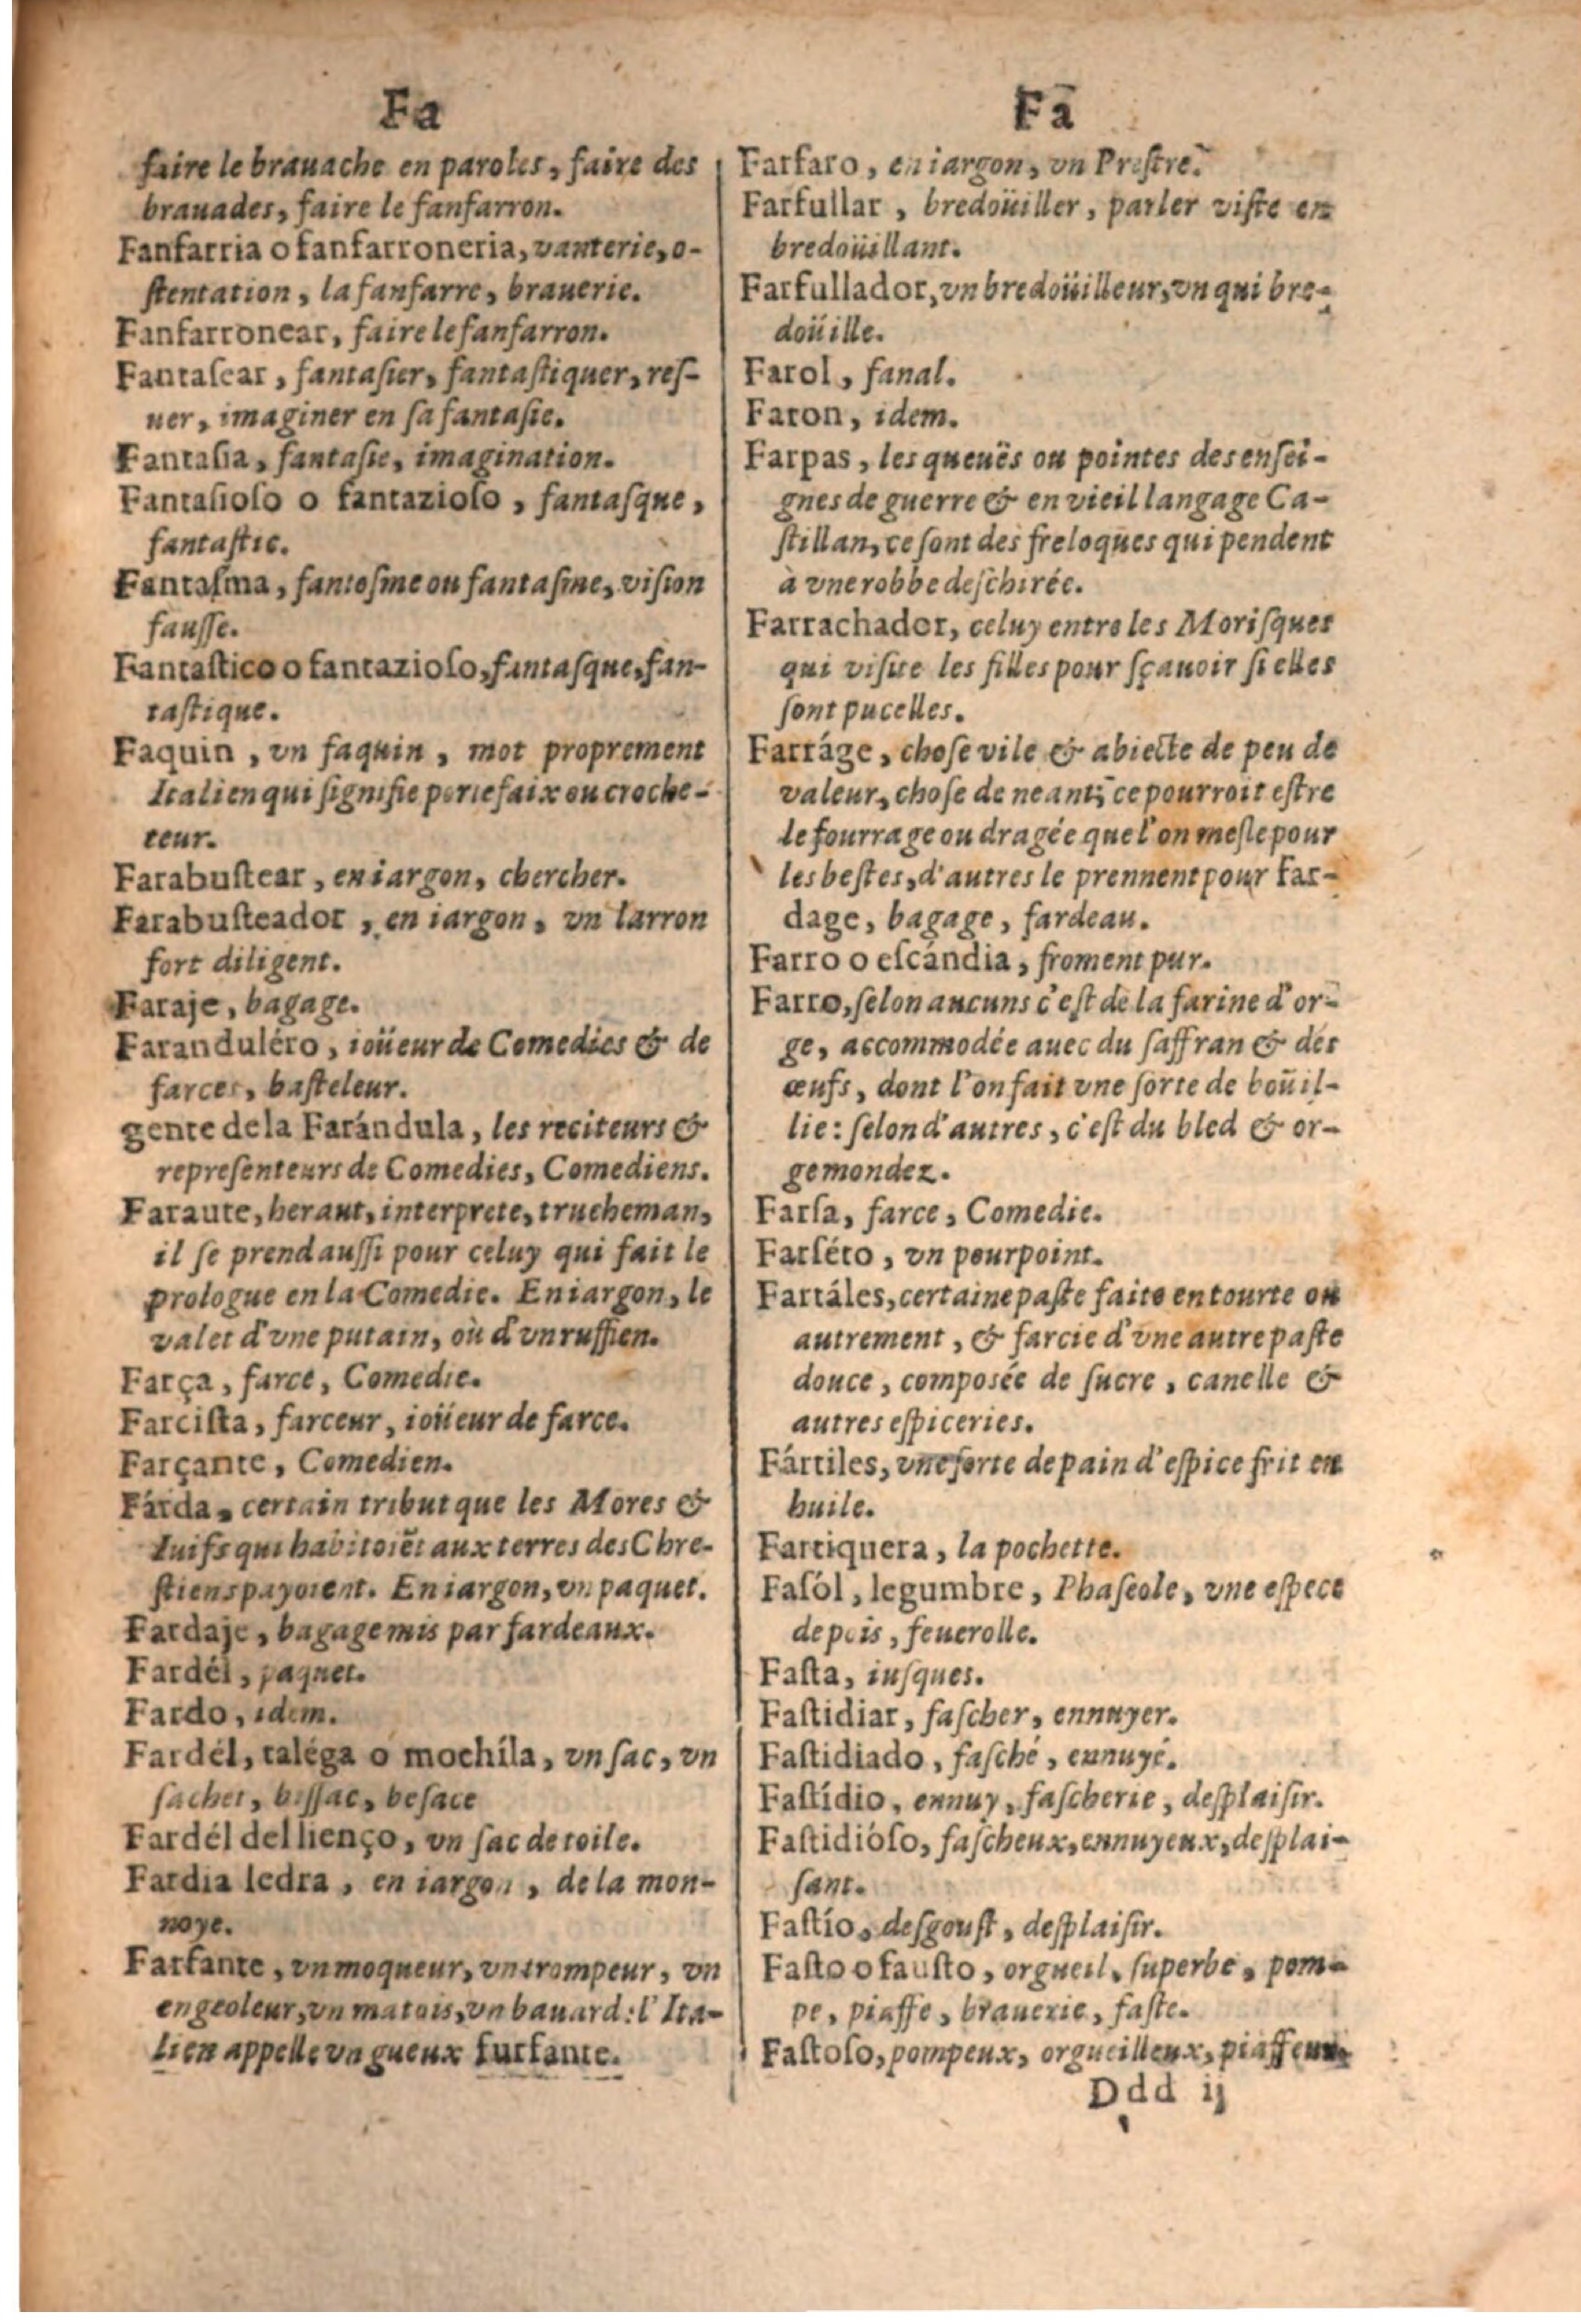 Fa
faire le brauache en paroles, faire des
brauades, faire le fanfarron.
Fanfarria o fanfarroneria, vanterie, o-
ſtentation, la fanfarre, brauerie.
Fanfarronear, faire le fanfarron.
Fantaſear, fantaſier, fantaſtiquer, reſ-
uer, imaginer en ſa fantaſie.
Fantaſia, fantaſie, imagination.
Fantaſioſo o fantazioſo, fantaſque,
fantaſtic.
Fantaſma, fantoſme ou fantaſme, viſion
fauſſe.
Fantaſtico o fantazioſo, fantaſque, fan-
taſtique.
Faquin, vn faquin, mot proprement
Italien qui ſignifie portefaix ou croche-
teur.
Farabuſtear, en iargon, chercher.
Farabuſteador, en iargon, vn larron
fort diligent.
Faraje, bagage.
Faranduléro, ioüeur de Comedies & de
farces, baſteleur.
gente dela Farándula, les reciteurs &
repreſenteurs de Comedies, Comediens.
Faraute, heraut, interprete, trucheman,
il ſe prend auſſi pour celuy qui fait le
prologue en la Comedie. En iargon, le
valet d'vne putain, où d'vn ruffien.
Farça, farce, Comedie.
Farciſta, farceur, ioüeur de farce.
Farçante, Comedien.
Fárda, certain tribut que les Mores &
Iuifs qui habitoiẽt aux terres des Chre-
ſtiens payoient. En iargon, vn paquet.
Fardaje, bagage mis par fardeaux.
Fardél, paquet.
Fardo, idem.
Fardél, taléga o mochíla, vn ſac, vn
ſachet, biſſac, beſace
Fardél del lienço, vn ſac de toile.
Fardia ledra, en iargon, de la mon-
noye.
Farfante, vn moqueur, vn trompeur, vn
engeoleur, vn matois, vn bauard: l'Ita-
lien appelle vn gueux furfante.
Fa
Farfaro, en iargon, vn Preſtre.
Farfullar, bredoüiller, parler viſte en
bredoüillant.
Farfullador, vn bredoüilleur, vn qui bre-
doüille.
Farol, fanal.
Faron, idem.
Farpas, les queuës ou pointes des enſei-
gnes de guerre & en vieil langage Ca-
ſtillan, ce ſont des freloques qui pendent
à vne robbe deſchirée.
Farrachador, celuy entre les Moriſques
qui viſite les filles pour ſçauoir ſi elles
ſont pucelles.
Farráge, choſe vile & abiecte de peu de
valeur, choſe de neant; ce pourroit eſtre
le fourrage ou dragée que l'on meſle pour
les beſtes, d'autres le prennent pour far-
dage, bagage, fardeau.
Farro o eſcándia, froment pur.
Farro, ſelon aucuns c'eſt de la farine d'or-
ge, accommodée auec du ſaffran & des
œufs, dont l'on fait vne ſorte de boüil-
lie: ſelon d'autres, c'eſt du bled & or-
ge mondez.
Farſa, farce, Comedie.
Farſéto, vn pourpoint.
Fartáles, certaine paſte faite en tourte ou
autrement, & farcie d'vne autre paſte
douce, compoſée de ſucre, canelle &
autres eſpiceries.
Fártiles, vne ſorte de pain d'eſpice frit en
huile.
Fartiquera, la pochette.
Faſól, legumbre, Phaſeole, vne eſpece
de pois, feuerolle.
Faſta, iuſques.
Faſtidiar, faſcher, ennuyer.
Faſtidiado, faſché, ennuyé.
Faſtídio, ennuy, faſcherie, deſplaiſir.
Faſtidióſo, faſcheux, ennuyeux, deſplai-
ſant.
Faſtío, deſgouſt, deſplaiſir.
Faſto o fauſto, orgueil, ſuperbe, pom-
pe, piaffe, brauerie, faſte.
Faſtoſo, pompeux, orgueilleux, piaffeur.
Ddd ij